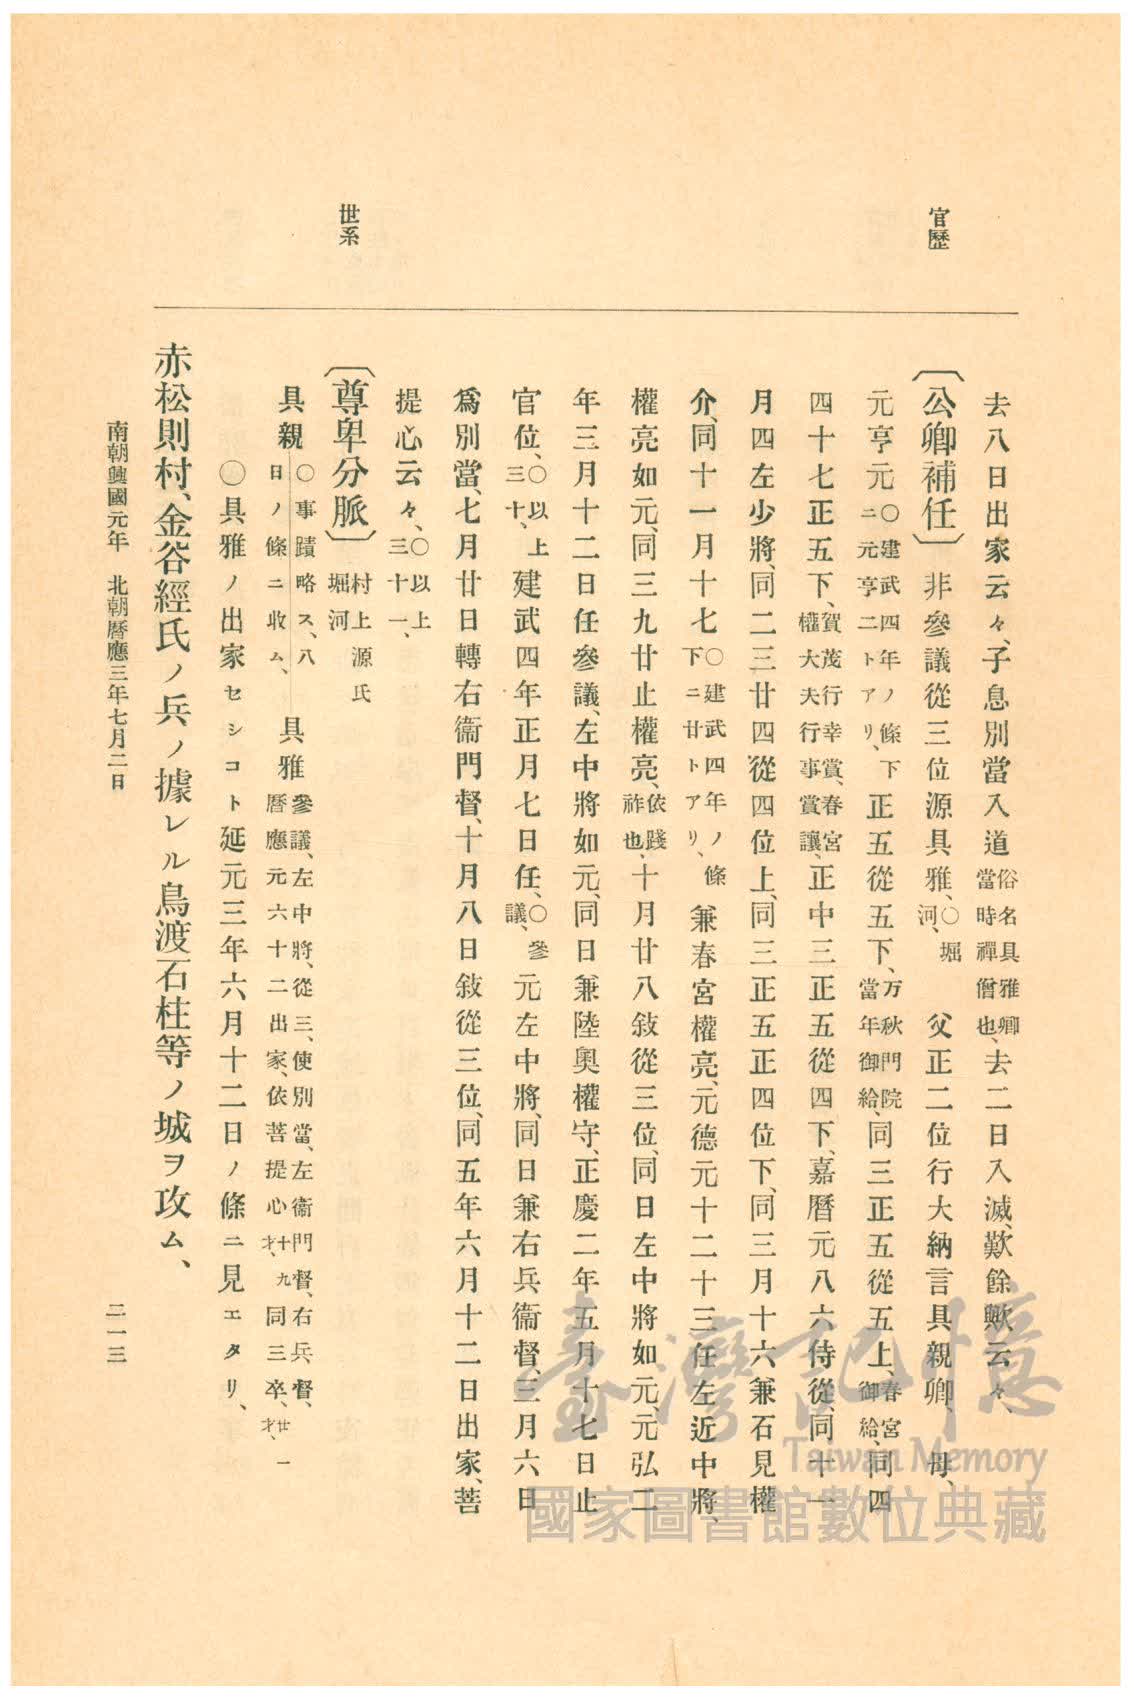 官歷
世系
去八日出家云々、子息別當入道俗名具雅卿當時禪僧也、去二日入滅、歎餘歟云々、
〔公卿補任〕非參議從三位源具雅、〇堀河、父正二位行大納言具親卿、母、
元亨元〇建武四年ノ條ニ元亨二トアリ、下正五從五下、万秋門院當年御給、同三正五從五上、春宮御給、同四
四十七正五下、賀茂行幸賞、春宮權大夫行事賞讓、正中三正五從四下、嘉曆元八六侍從、同十一
月四左少將、同二三廿四從四位上、同三正五正四位下、同三月十六兼石見權
介、同十一月十七〇建武四年ノ條下ニ廿トアリ、兼春宮權亮、元德元十二十三任左近中將、
權亮如元、同三九廿止權亮、依踐祚也、十月廿八敍從三位、同日左中將如元、元弘二
年三月十二日任參議、左中將如元、同日兼陸奧權守、正慶二年五月十七日止
官位、〇以上三十、建武四年正月七日任、〇參議、元左中將、同日兼右兵衞督、三月六日
爲別當、七月廿日轉右衞門督、十月八日敍從三位、同五年六月十二日出家、菩
提心云々、〇以上三十一、
〔尊卑分脈〕村上源氏堀河
具親〇事蹟略ス、八日ノ條ニ收ム、具雅參議、左中將、從三、使別當、左衞門督、右兵、督、曆應元六十二出家、依菩提心、十九才、同三卒、廿一才、
〇具雅ノ出家セシコト延元三年六月十二日ノ條ニ見エタリ、
赤松則村、金谷經氏ノ兵ノ據レル鳥渡石柱等ノ城ヲ攻ム、
南朝興國元年　北朝曆應三年七月二日
二一三
臺灣記憶
Taiwan Memory
國家圖書館數位典藏